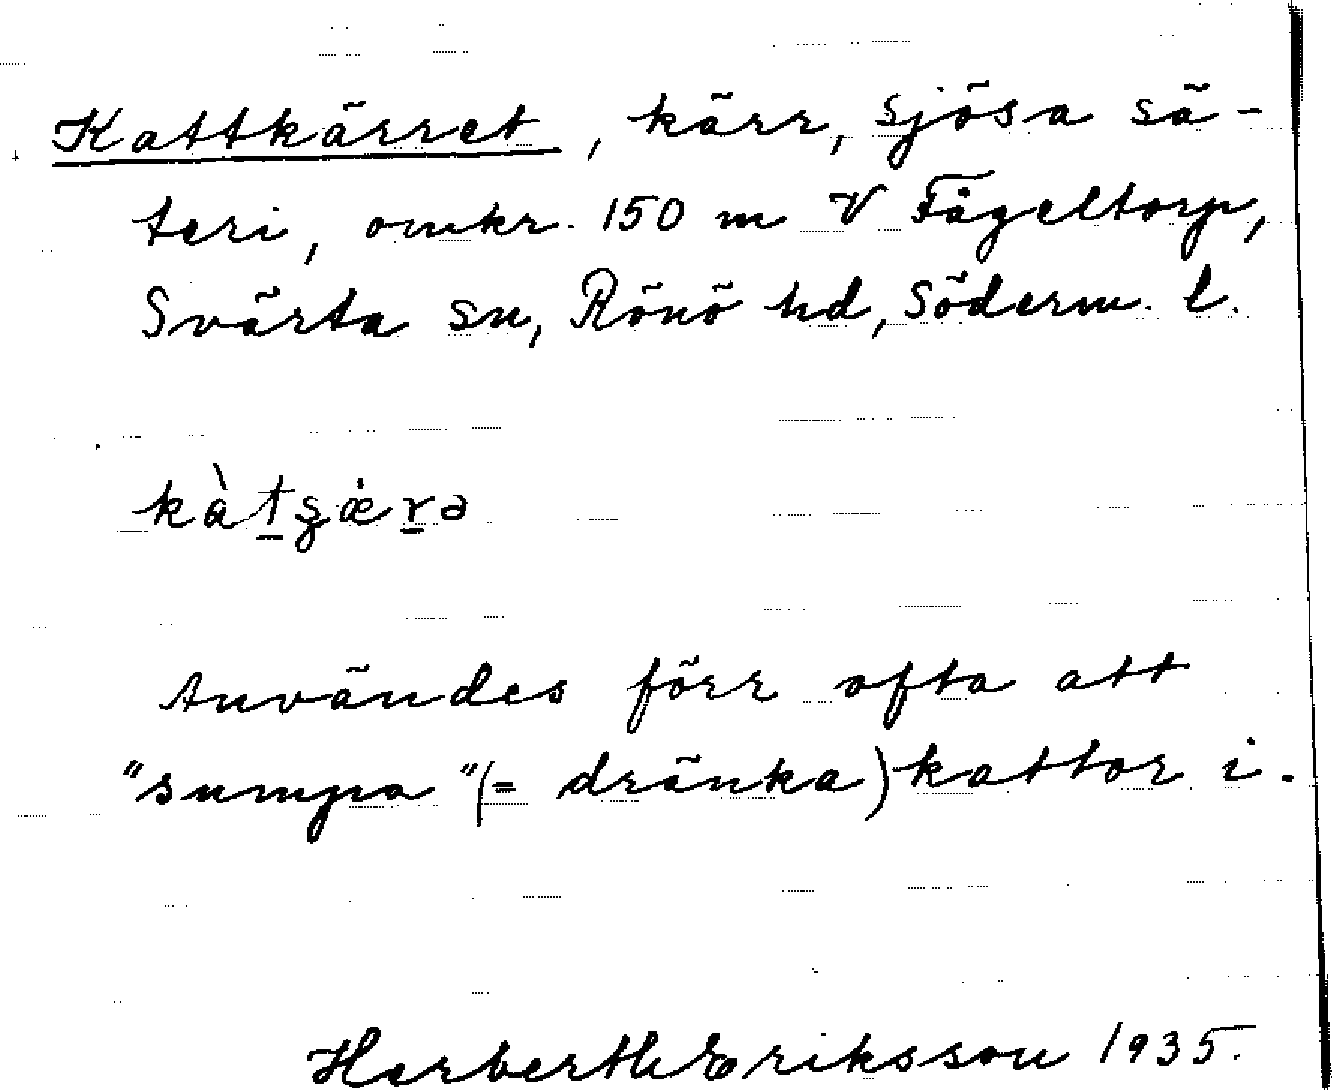 Kattkärret, kärr, Sjösa sä-
teri, omkr. 150 m V Fågeltorp,
Svärta sn, Rönö hd, Söderm. l.
Användes förr ofta att
"sumpa" (= dränka) kattor i.
Herbert Eriksson 1935.